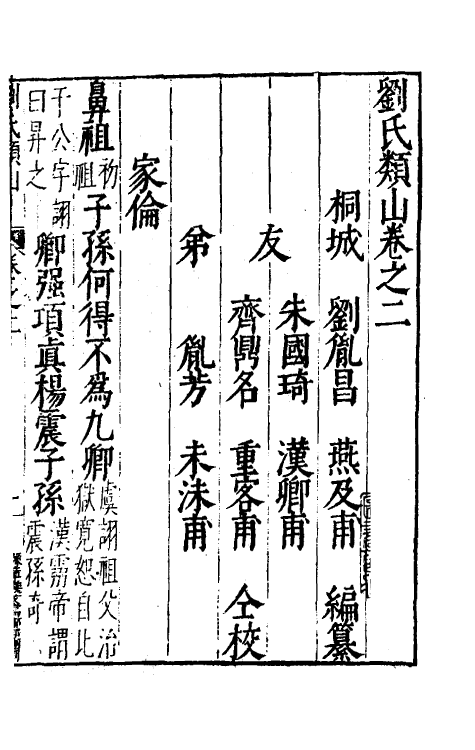 劉氏類山卷之二
桐城 劉胤昌 燕及甫 編纂
朱國琦 漢卿甫
友
齊鼎名 重客甫 仝校
弟 胤芳 未沬甫
家倫
鼻祖 初祖 子孫何得不爲九卿 虞詡祖父治獄寬恕自比
于公字詡曰昇之 卿强項眞楊震子孫 漢靈帝謂震孫奇